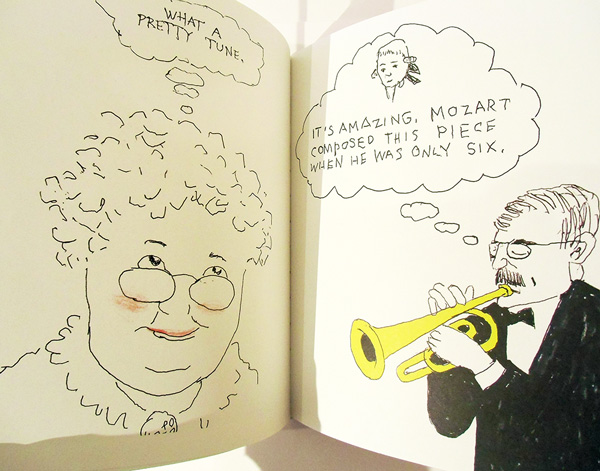 WHAT A
PRETTY TUNE.
IT'S AMAZING, MOZART
COMPOSED THIS PIECE
WHEN HE WAS ONLY SIX.